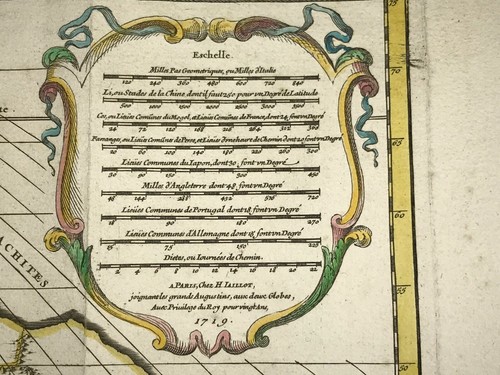 Eschelle.
Milles Pas Geometriques, ou Milles d'Italie
120 240 360 480 600 720 840
Li, ou Stades de la Chine dont il faut 250 pour vn Degré de Latitude
500 1000 1500 2000 2500 3000 3500
Cos, ou Lieües Comūnes du Mogol, et Lieües Comūnes de France, dont 24 font vn Degré
24 72 120 168 216 264 312
Parasanges, ou Lieües Comūnes de Perse, et Lieües d'une heure de Chemin dont 20 font vn Degré
20 60 100 140 180 220 260 300
Lieües Communes du Iapon, dont 30 font vn Degré
30 90 150 300 450
Milles d'Angleterre dont 48 font vn Degré
48 144 288 432 576 720
Lieües Communes de Portugal dont 18 font vn Degré
Lieües Communes d'Allemagne dont 15 font vn Degré
15 75 150 225
Dietes, ou Iournées de Chemin.
2 4 6 8 10 12 14 16 18 20 22
A PARIS, Chez H. IAILLOT,
joignant les grands Augustins, aux deux Globes,
Avec Privilege du Roy pour vingt Ans,
1719.
ACHITES
75
70
65
60
55
50